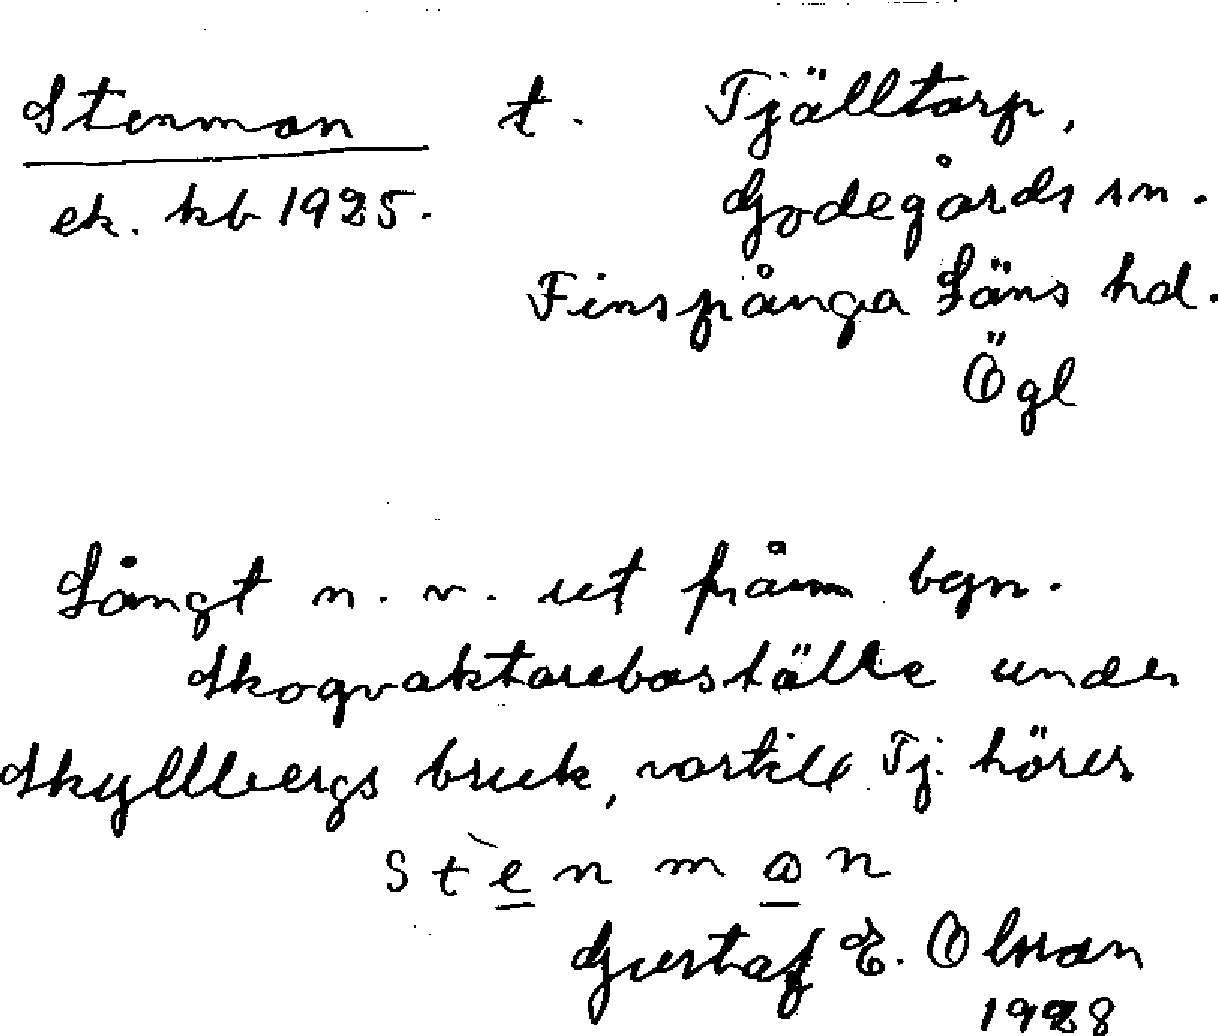 Stenman t. Tjälltorp,
ek. kb 1925. Godegårds sn.
Finspånga Läns hd.
Ögl
Långt n. v. ut från bgn.
Skogvaktareboställe under
Skyllbergs bruk, vartill Tj. hörer
Stènman
Gustaf E. Olsson
1928